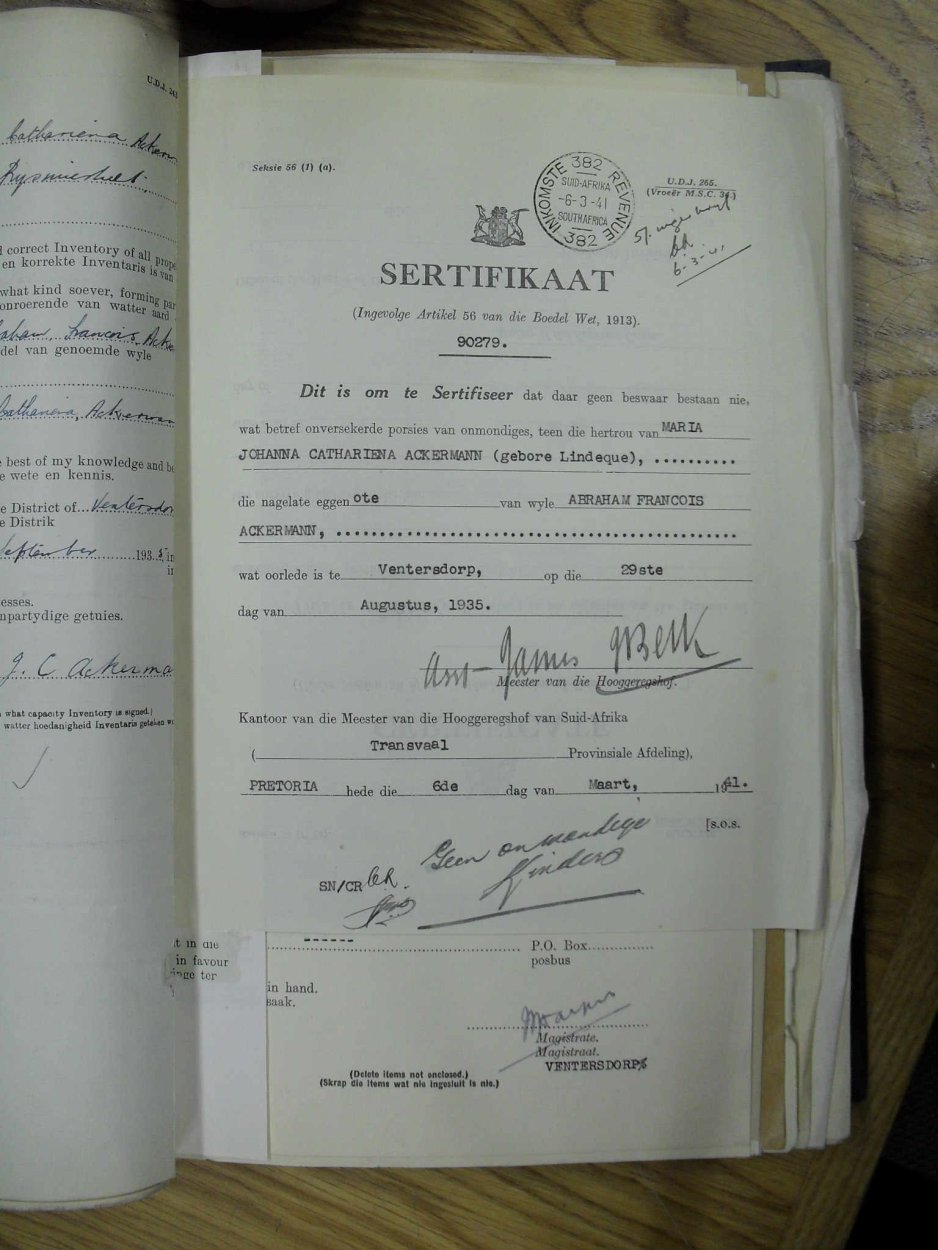 U.D.J. 243
Cathariena Acker
Rysmierbult,
d correct Inventory of all prope
en korrekte Inventaris is van
what kind soever, forming par
onroerende van watter aard
aham, Francois, Acke
del van genoemde wyle
Cathariena, Ackerman
e best of my knowledge and be
e wete en kennis.
e District of Ventersdor
e Distrik
September 1935 in
in
esses.
npartydige getuies.
J. C Ackerma
n what capacity Inventory is signed.)
watter hoedanigheid Inventaris geteken w
Seksie 56 (1) (a).
382
INKOMSTE REVENUE
SUID-AFRIKA
-6-3-41
SOUTH AFRICA
382
U.D.J. 265.
(Vroeër M.S.C. 34.)
6-3-41
SERTIFIKAAT
(Ingevolge Artikel 56 van die Boedel Wet, 1913).
90279.
Dit is om te Sertifiseer dat daar geen beswaar bestaan nie,
wat betref onversekerde porsies van onmondiges, teen die hertrou van MARIA
JOHANNA CATHARIENA ACKERMANN (gebore Lindeque), ..........
die nagelate eggen ote van wyle ABRAHAM FRANCOIS
ACKERMANN, ..............................................
wat oorlede is te Ventersdorp, op die 29ste
dag van Augustus, 1935.
Asst-
Meester van die Hooggeregshof.
Kantoor van die Meester van die Hooggeregshof van Suid-Afrika
( Transvaal Provinsiale Afdeling),
PRETORIA hede die 6de dag van Maart, 1941.
[S.O.S.
Geen onmondige
Kinders
SN/CR
t in die
in favour
inge ter
------ P.O. Box
posbus
in hand.
saak.
Magistrate.
Magistraat.
VENTERSDORP
(Delete items not enclosed.)
(Skrap die items wat nie ingesluit is nie.)